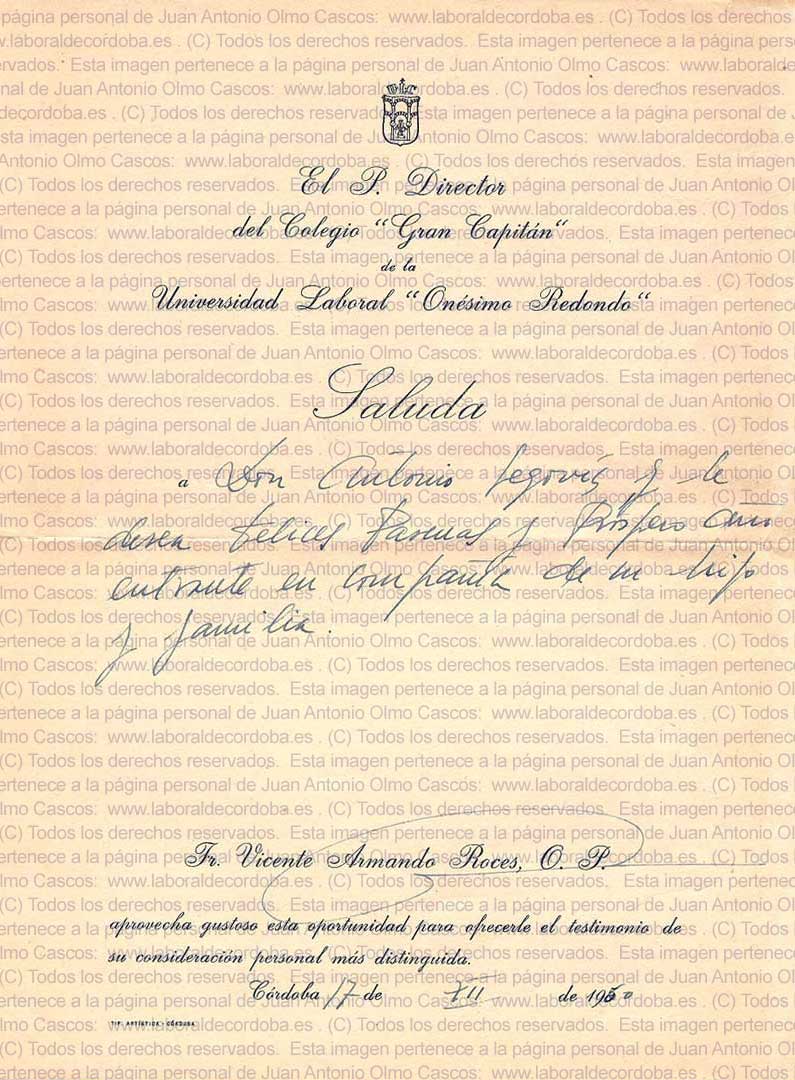 El P. Director
del Colegio "Gran Capitán"
de la
Universidad Laboral "Onésimo Redondo"
Saluda
a Don Antonio Segovia y le
desea felices Pascuas y Próspero año
entrante en compañía de su hijo
y familia.
Fr. Vicente Armando Roces, O. P.
aprovecha gustoso esta oportunidad para ofrecerle el testimonio de
su consideración personal más distinguida.
Córdoba 17 de XII de 19
TIP. ARTÍSTICA - CÓRDOBA
Esta imagen pertenece a la página personal de Juan Antonio Olmo Cascos: www.laboraldecordoba.es . (C) Todos los derechos reservados.